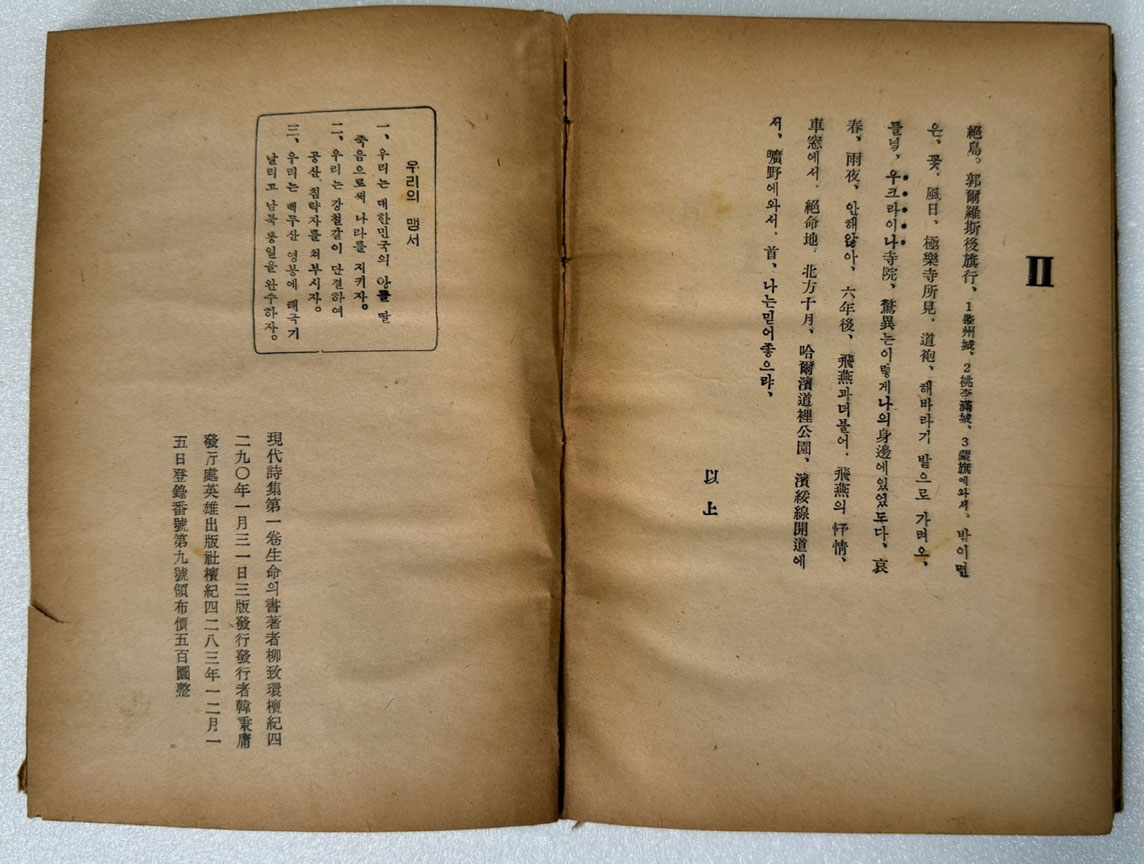 II
絕島。郭爾羅斯後旗行、1肇州城、2桃李滿城、3蒙旗에와서、밤이면
은、꽃、風日、極樂寺所見、道袍、해바라기 밭으로 가려오、
들녘、우크라이나寺院、驚異는이렇게나의身邊에있었도다、哀
春、雨夜、안해앓아、六年後、飛燕과더불어、飛燕의 抒情、
車窓에서、絕命地、北方十月、哈爾濱道裡公園、濱綏線開道에
서、曠野에와서、首、나는믿어좋으랴、
以上
우리의 맹서
一、우리는 대한민국의 아들 딸
죽음으로써 나라를 지키자。
二、우리는 강철같이 단결하여
공산 침략자를 쳐부시자。
三、우리는 백두산 영봉에 태극기
날리고 남북 통일을 완수하자。
現代詩集第一卷生命의書著者柳致環檀紀四
二九〇年一月三一日三版發行發行者韓秉庸
發行處英雄出版社檀紀四二八三年一二月一
五日登錄番號第九號頒布價五百圜整